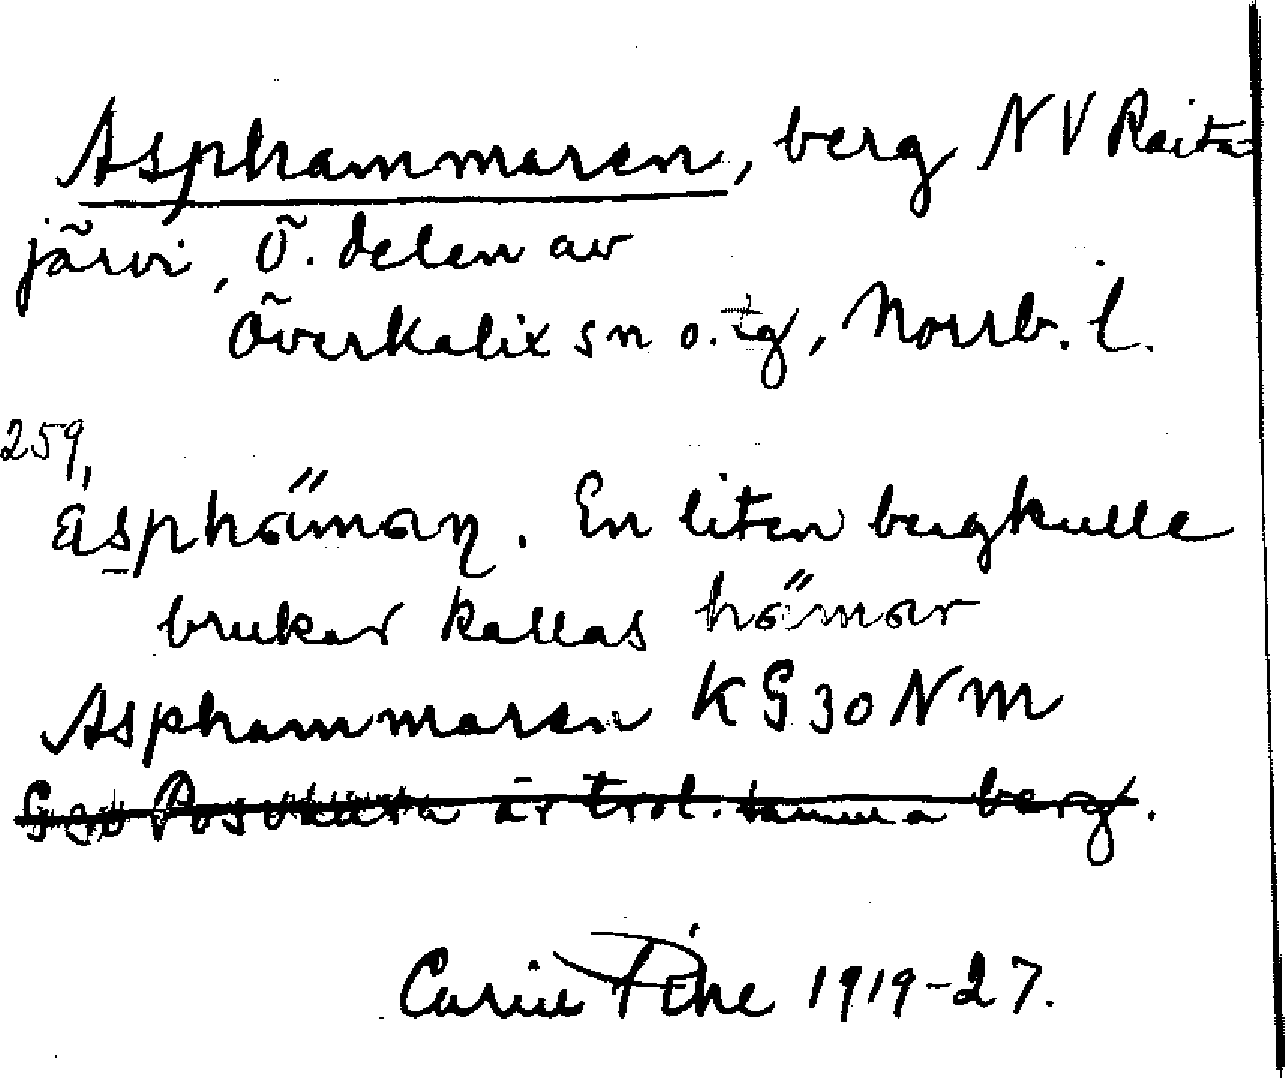 Asphammaren, berg NV Raita
järvi, Ö. delen av
Överkalix sn o. tg, Norrb. l.
259,
äsphäman. En liten bergkulle
brukar kallas hämar
Asphammaren KG30NM
är trol. samma berg.
Carin Pihe 1919-27.